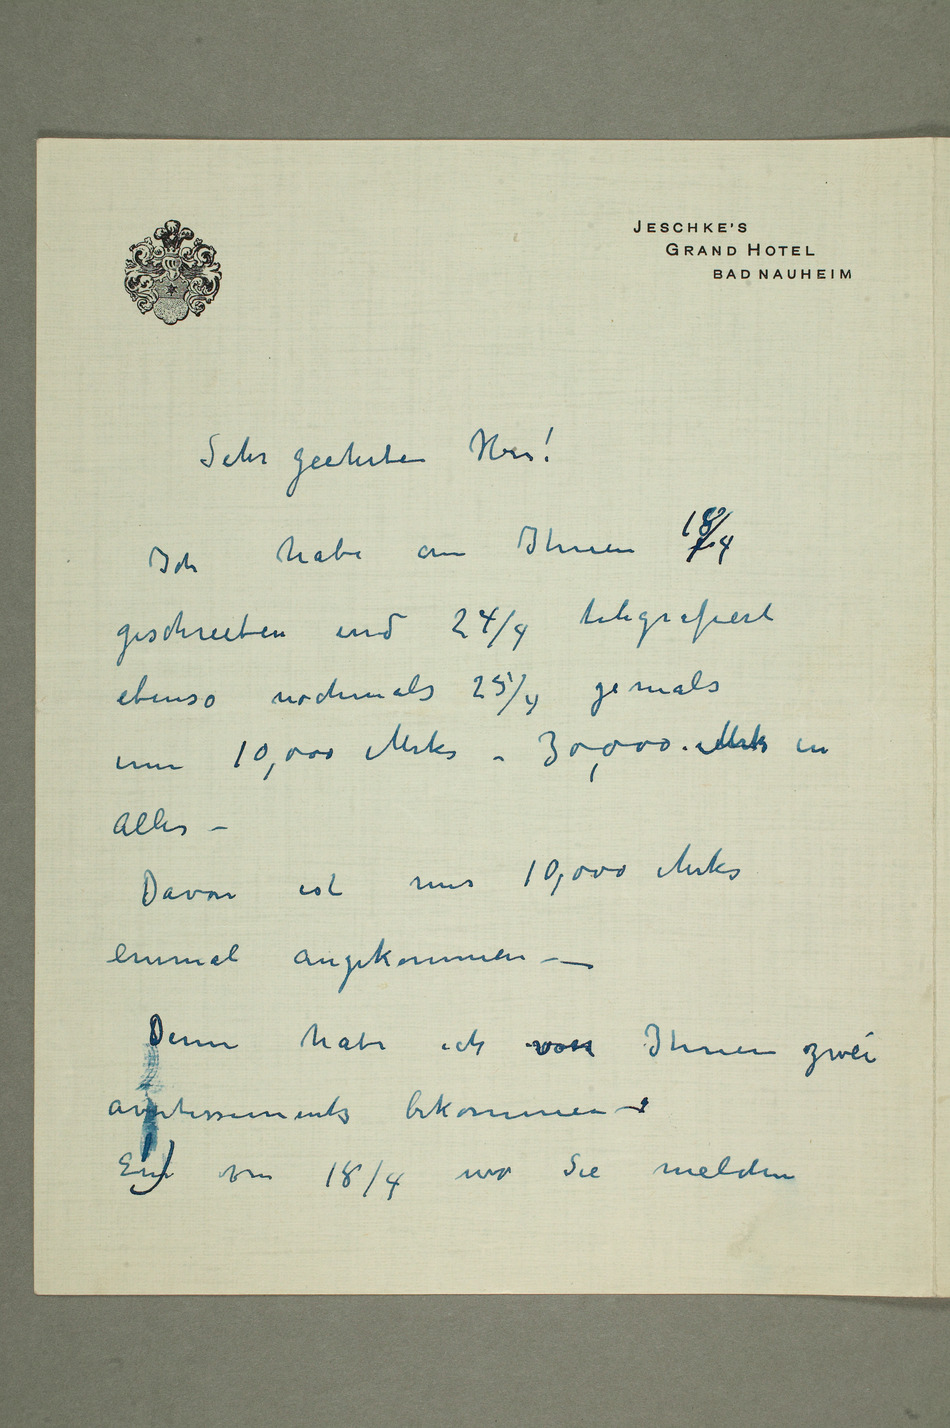 JESCHKE'S
GRAND HOTEL
BAD NAUHEIM
Sehr geehrten Herr!
Ich habe an Ihnen 18/4
geschreiben und 24/4 telegrafiert
ebenso nochmals 25/4 jemals
um 10,000 Mrks - 30,000 Mrks in
Alles -
Davon ist nur 10,000 Mrks
einmal angekommen —
Denn habe ich von Ihnen zwei
avertissements bekommen -
Ein vom 18/4 wo Sie melden